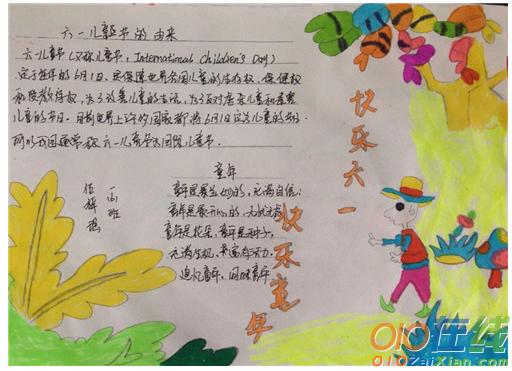 六一儿童节的由来
六一儿童节(又称儿童节,International Children's Day)
定于每年的6月1日。为保障世界各国儿童的生存权、保健权
和受教育权,为了改善儿童的生活,为了反对虐杀儿童和毒害
儿童的节日。目前世界上许多国家都将6月1日定为儿童的节日。
所以我国通常称六一儿童节为国际儿童节。
快乐六一
童年
童年是
童年是 开心的、无忧无虑
童年是花朵、童年是种子,
充满生机、 活力。
追忆童年、回味童年
快乐童年
010在线
010ZaiXian.com